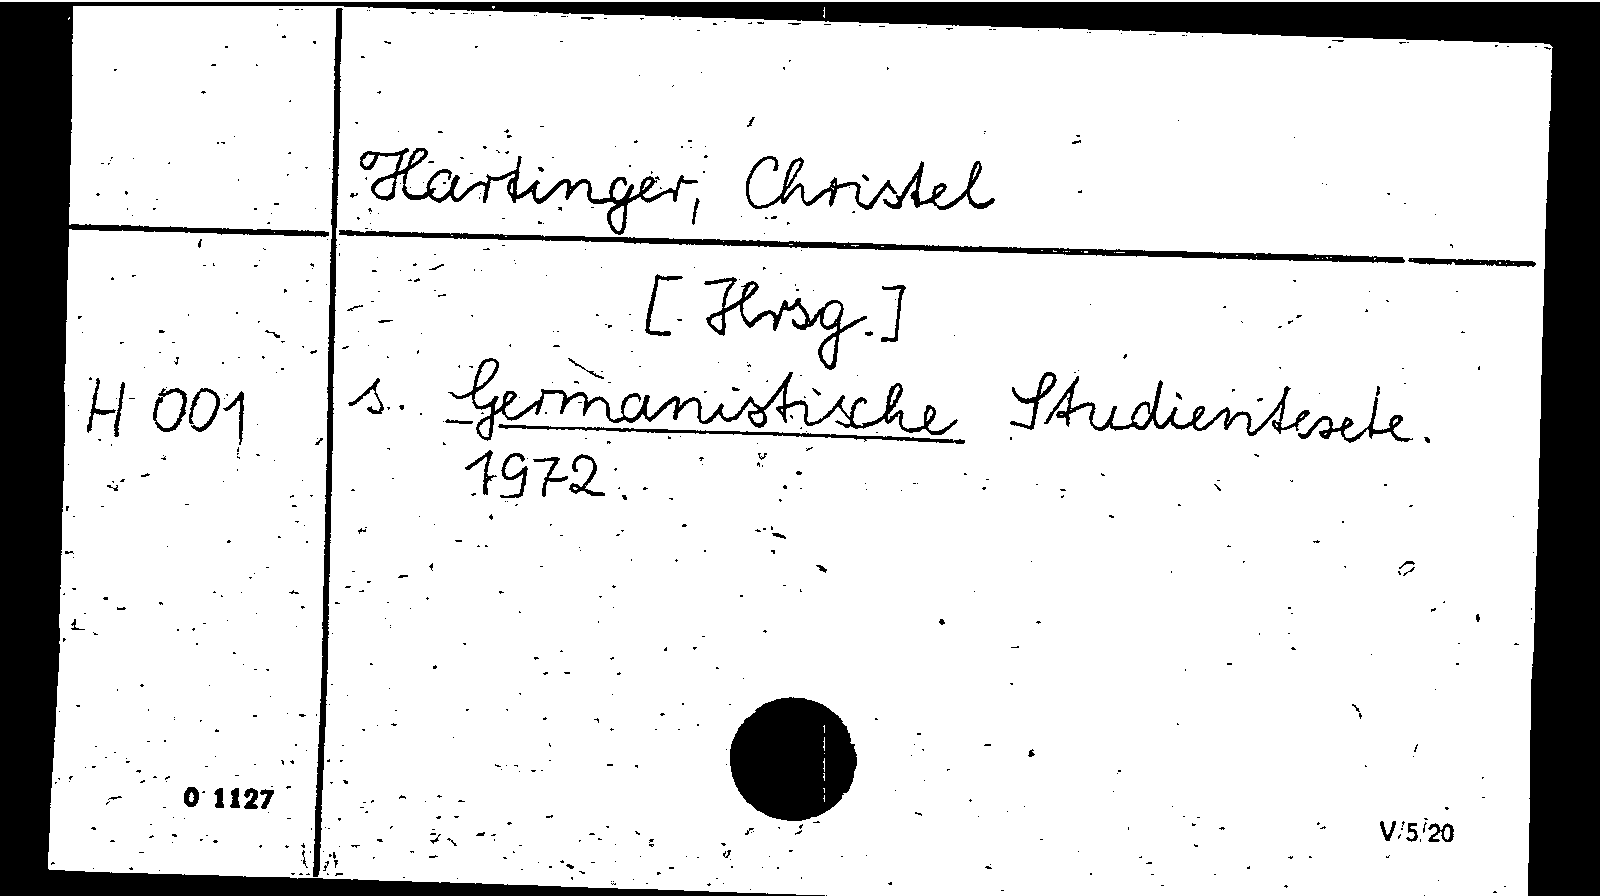 Hartinger, Christel
[Hrsg.]
H 001 s. Germanistische Studientexte.
1972.
0 1127
V/5/20